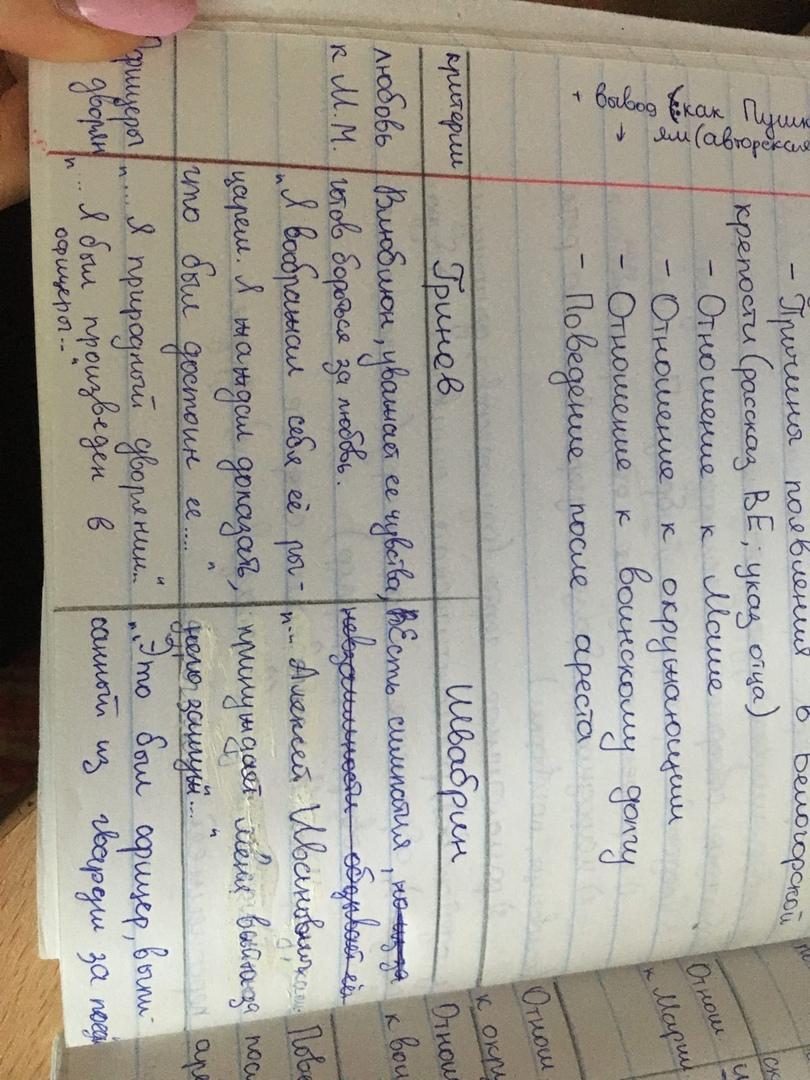 + вывод (как Пушк
↓ ям (авторская
- Причины появления в Белогорской
крепости (рассказ ВЕ, указ отца)
- Отношение к Маше
- Отношение к окружающим
- Отношение к воинскому долгу
- Поведение после ареста
критерии Гринев Швабрин
любовь Влюблион, уважает ее чувства, Есть симпатия, но из-за
к М.М. готов бороться за любовь. невзаимности обзывает её
"Я воображал себя её ры- "... Алексей Иванович
царем. Я жаждал доказать, принуждает меня выйти за
что был достоин ее...." него замуж..."
Офицеры "... Я природный дворянин.." "Это был офицер, выпи-
дворян "... Я был произведен в санный из гвардии за поед
офицеры.."
Отнош
к Марии
Отнош
к окру
Отнош
к вои
Пове
посл
аре